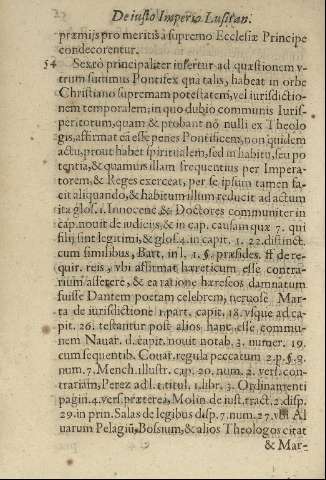 De iusto Imperio Lusitan.
præmijs pro meritis à supremo Ecclesiæ Principe
condecorentur.
54 Sexto principaliter infertur ad quæstionem v-
trum summus Pontifex qua talis, habeat in orbe
Christiano supremam potestatem, vel iurisdictio-
nem temporalem, in quo dubio communis Iuris-
peritorum, quam & probant nō nulli ex Theolo
gis, affirmat eā esse penes Pontificem, non quidem
actu, prout habet spiritualem, sed in habitu, seu po
tentia, & quamuis illam frequentius per Impera-
torem, & Reges exerceat, per se ipsum tamen fa-
cit aliquando, & habitum illum reducit ad actum
ita glos. 1. Innocenc. & Doctores communiter in
cap. nouit de iudicijs, & in cap. causam quæ 7. qui
filij sint legitimi, & glos. 4. in capit. 1. 22. distinct.
cum similibus, Bart. in l. 1. §. præsides. ff. de re-
quir. reis, vbi affirmat hæreticum esse contra-
rium asserere, & ea ratione hæreseos damnatum
fuisse Dantem poetam celebrem, neruosè Mar-
ta de iurisdictione 1. part. capit. 18. vsque ad ca-
pit. 26. testantur post alios hanc esse commu-
nem Nauar. d. capit. nouit notab. 3. numer. 19.
cum sequentib. Couar. regula peccatum 2. p. §. 9.
num. 7. Mench. illustr. cap. 20. num. 2. vers. con-
trariam, Perez ad l. 1. titul. 1. libr. 3. Ordinamenti
pagin. 4. vers. præterea, Molin. de iust. tract. 2. disp.
29. in prin. Salas de legibus disp. 7. num. 27. vbi Al
uarum Pelagiū, Bossium, & alios Theologos citat
& Mar-